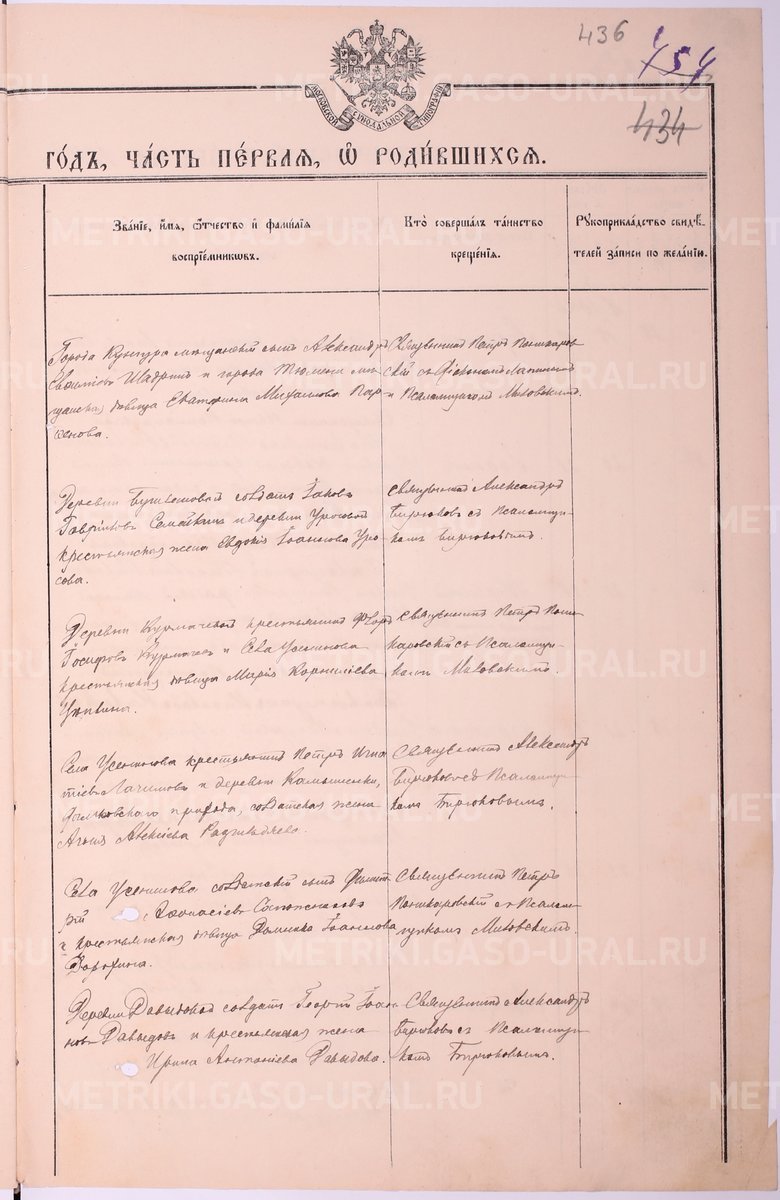 436
454
434
МОСКОВСКОЙ СѴНОДАЛЬНОЙ ТИПОГРАФІИ
ГО́ДЪ, ЧА́СТЬ ПЕ́РВАЯ, Ѡ҆ РОДИ́ВШИХСЯ.
Зва́нїе, и҆́мя, ѻ҆́тчество и҆ фами́лїя
воспрїе́мниковъ.
Кто̀ соверша́лъ та́инство
креще́нїя.
Рꙋкоприкла́дство свидѣ́-
телей за́писи по жела́нїю.
Города Кунгура мещанскій сынъ Александръ
Шадринъ и города Тюмени мѣ-
щанская дѣвица Екатерина Михаилова Пар-
фенова.
Священникъ Петръ Пономаров-
скій съ Діакономъ
и Псаломщикомъ Миловскимъ.
Деревни солдатъ Іаковъ
Гавриловъ и деревни Уросовой
крестьянская жена Евдокія Іоаннова Уро-
сова.
Священникъ Александръ
Бирюковъ съ Псаломщи-
комъ Бирюковымъ.
Деревни Курмачевой крестьянинъ
Іосифовъ Курмачевъ и Села Усенинова
крестьянская дѣвица Марія Корниліева
Священникъ Петръ
съ Псаломщи-
комъ Миловскимъ.
Села Усенинова крестьянинъ Петръ Игна-
тіевъ и деревни Камышенки,
прихода, солдатская жена
Агнія Алексіева
Священникъ Александръ
Бирюковъ съ Псаломщи-
комъ Бирюковымъ.
Села Усенинова солдатскій сынъ Димит-
рій Аѳанасіевъ Сапожниковъ
и крестьянская дѣвица Домника Іоаннова
Священникъ Петръ
съ Псалом-
щикомъ Миловскимъ.
Деревни Давыдовой солдатъ Георгій Іоан-
новъ Давыдовъ и крестьянская жена
Ирина Антоніева Давыдова.
Священникъ Александръ
Бирюковъ съ Псаломщи-
комъ Бирюковымъ.
METRIKI.GASO-URAL.RU